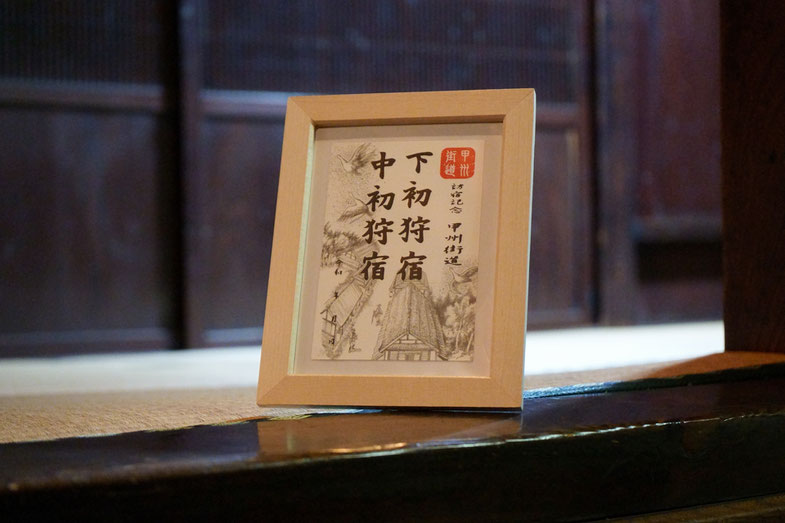 甲州
街道
訪宿記念 甲州街道
下初狩宿
中初狩宿
令和 年 月 日